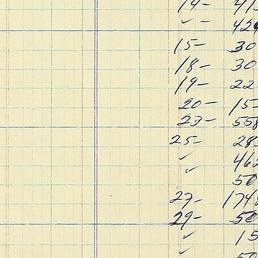 14-
✓ - 424
15- 30
18- 30
19- 22
20- 15-
23- 558
25- 28
✓ 462
✓ 50
27- 1748
29- 50
✓ 15
✓ 50